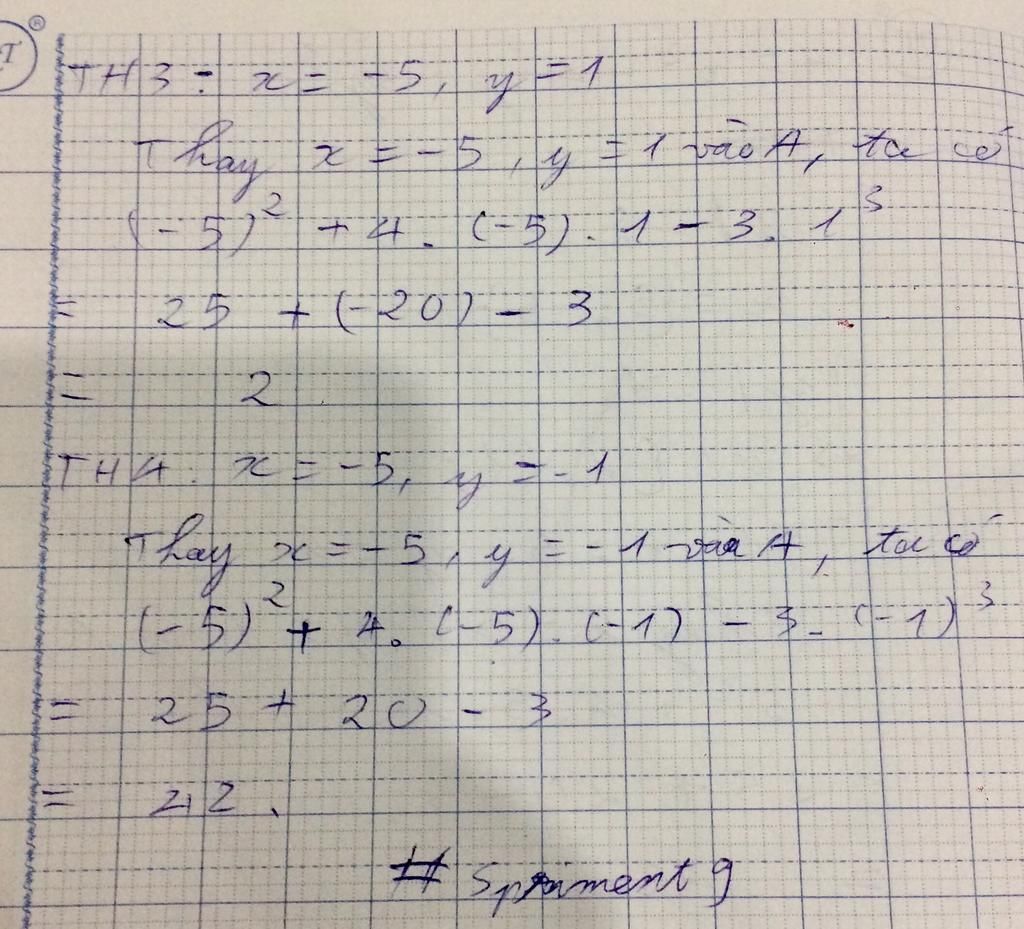 TH3: x = -5, y = 1
Thay x = -5, y = 1 vào A, ta có
(-5)² + 4. (-5). 1 - 3. 1³
= 25 + (-20) - 3
= 2
TH4: x = -5, y = -1
Thay x = -5, y = -1 vào A, ta có
(-5)² + 4. (-5). (-1) - 3. (-1)³
= 25 + 20 - 3
= 42.
#